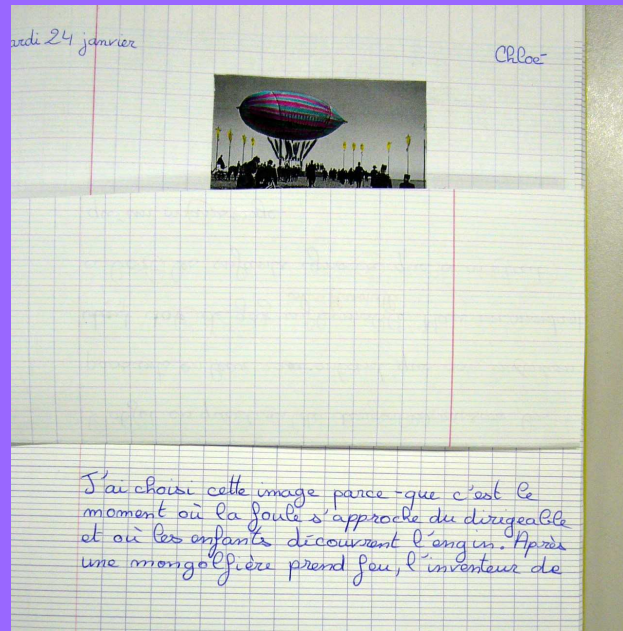 ardi 24 janvier
Chloé
J'ai choisi cette image parce-que c'est le
moment où la foule s'approche du dirigeable
et où les enfants découvrent l'engin. Après
une mongolfière prend feu, l'inventeur de